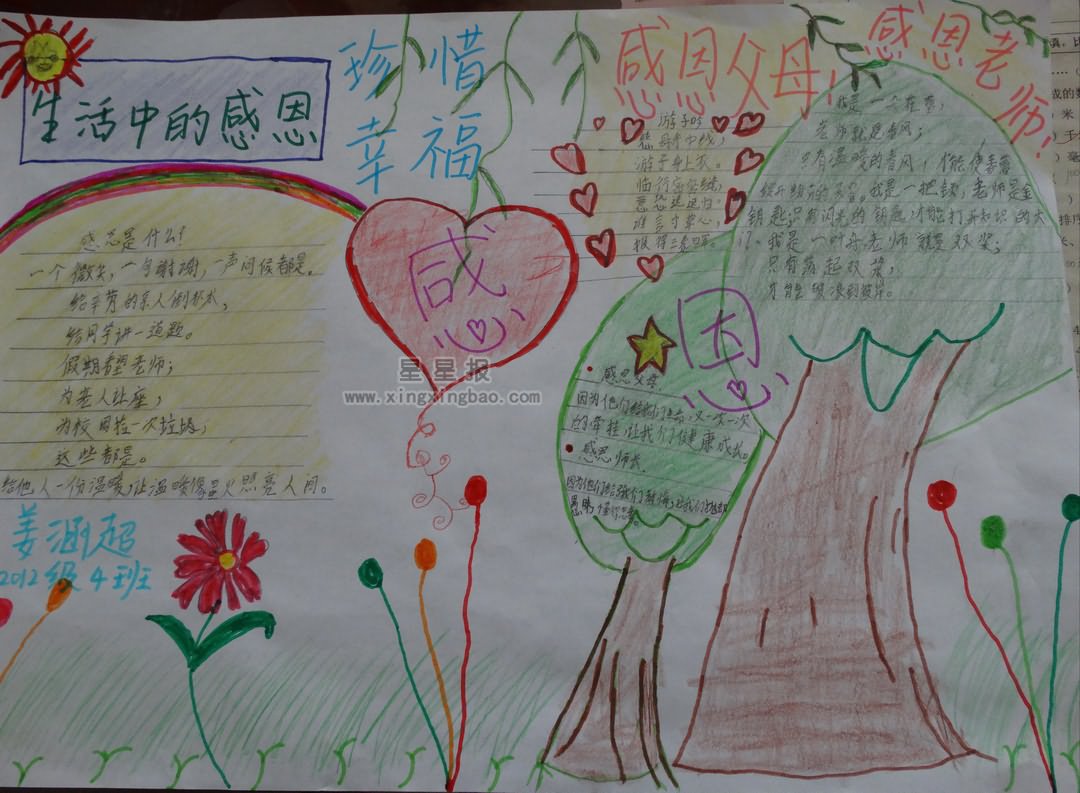 生活中的感恩
感恩是什么?
一个微笑,一句谢谢,一声问候都是。
给辛劳的亲人倒杯水,
给同学讲一道题。
假期看望老师;
为老人让座;
为校园捡一次垃圾,
这些都是。
给他人一份温暖,让温暖像星火照亮人间。
姜涵超
2012级4班
珍惜
幸福
感
恩
星星报
www.xingxingbao.com
感恩父母!
游子吟
慈母手中线,
游子身上衣。
临行密密缝,
意恐迟迟归。
谁言寸草心,
报得三春晖。
感恩父母
因为他们给我们生命,又一次一次
的牵挂,让我们健康成长。
感恩师长
感恩老师!
老师就是春风;
只有温暖的春风,才能使
我是一把锁,老师是金
钥匙只有闪光的钥匙,才能打开知识的大
门。我是一叶舟老师就是双桨;
只有荡起双桨,